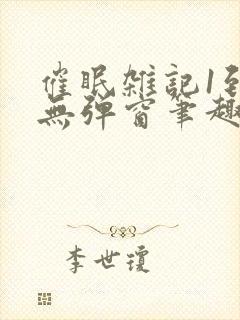 催眠雑記1
無彈窗筆趣
李世瓊